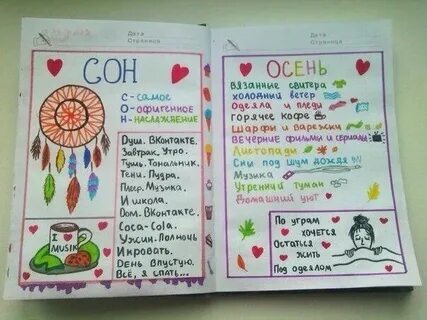 Дата
Страница
СОН
С - самое
О - офигенное
Н - наслаждение
Душ. ВКонтакте.
Завтрак. Утро.
Тушь. Тональник.
Тени. Пудра.
Плеер. Музыка.
И школа.
Дом. ВКонтакте.
Coca-Cola.
Ужин. Полночь
И кровать.
День впустую.
Всё, я спать...
I ❤ MUSIK
Дата
Страница
ОСЕНЬ
Вязанные свитера
холодный ветер
Одеяла и пледы
горячее кофе
Шарфы и варежки
Вечерние фильмы и сериалы
Листопады
Сны под шум дождя
Музыка
Утренний туман
Домашний уют
По утрам
хочется
Остаться
жить
Под одеялом